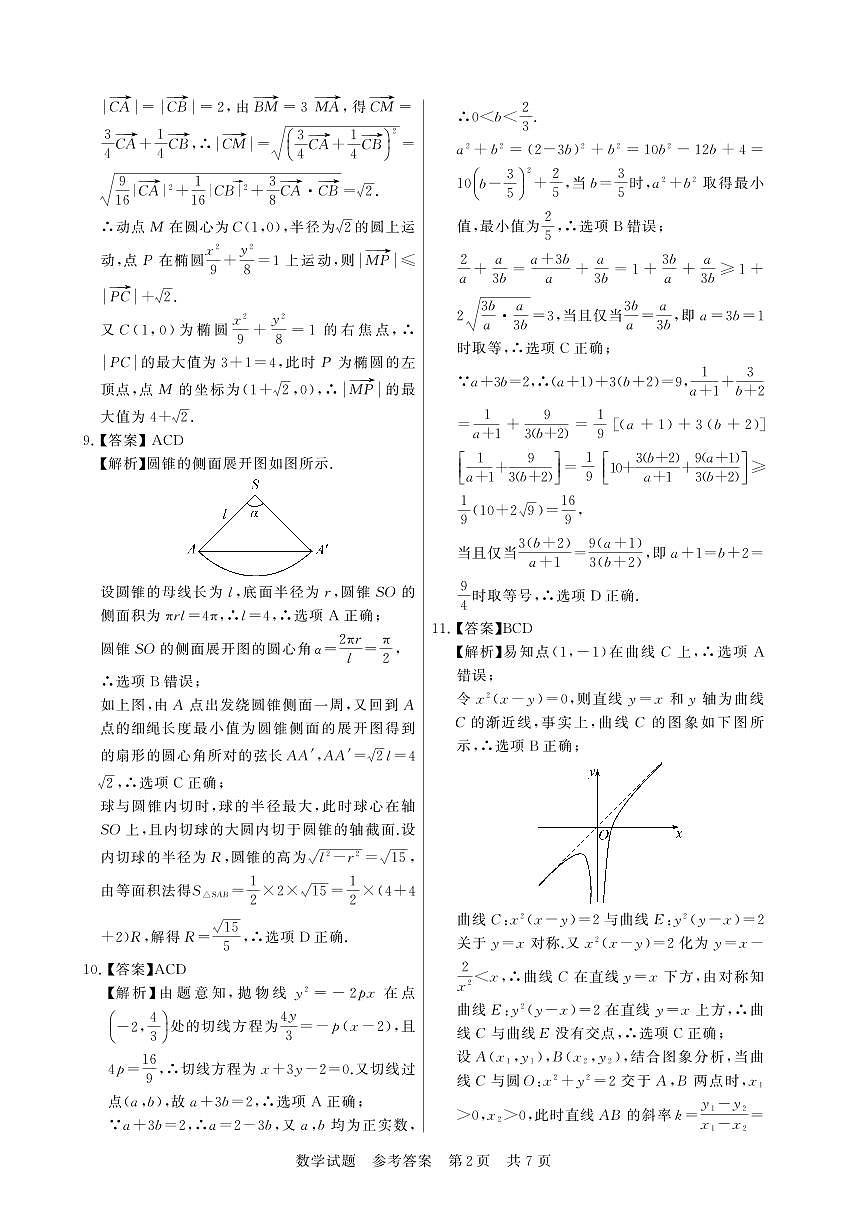 |CA|=|CB|=2,由BM=3 MA,得CM=
3/4 CA+1/4 CB,∴|CM|=√((3/4 CA+1/4 CB)²)=
√(9/16|CA|²+1/16|CB|²+3/8 CA·CB)=√2.
∴动点 M 在圆心为 C(1,0),半径为√2的圆上运
动,点 P 在椭圆x²/9+y²/8=1 上运动,则|MP|≤
|PC|+√2.
又 C(1,0)为椭圆 x²/9+y²/8=1 的右焦点,∴
|PC|的最大值为 3+1=4,此时 P 为椭圆的左
顶点,点 M 的坐标为(1+√2,0),∴|MP|的最
大值为 4+√2.
9.【答案】ACD
【解析】圆锥的侧面展开图如图所示.
S
l
α
A
A′
设圆锥的母线长为 l,底面半径为 r,圆锥 SO 的
侧面积为 πrl=4π,∴l=4,∴选项 A 正确;
圆锥 SO 的侧面展开图的圆心角 α=2πr/l=π/2,
∴选项 B 错误;
如上图,由 A 点出发绕圆锥侧面一周,又回到 A
点的细绳长度最小值为圆锥侧面的展开图得到
的扇形的圆心角所对的弦长 AA′,AA′=√2l=4
√2,∴选项 C 正确;
球与圆锥内切时,球的半径最大,此时球心在轴
SO 上,且内切球的大圆内切于圆锥的轴截面.设
内切球的半径为 R,圆锥的高为√(l²-r²)=√15,
由等面积法得S△SAB=1/2×2×√15=1/2×(4+4
+2)R,解得 R=√15/5,∴选项 D 正确.
10.【答案】ACD
【解析】由题意知,抛物线 y²=-2px 在点
(-2,4/3)处的切线方程为4y/3=-p(x-2),且
4p=16/9,∴切线方程为 x+3y-2=0.又切线过
点(a,b),故 a+3b=2,∴选项 A 正确;
∵a+3b=2,∴a=2-3b,又 a,b 均为正实数,
∴0<b<2/3.
a²+b²=(2-3b)²+b²=10b²-12b+4=
10(b-3/5)²+2/5,当 b=3/5时,a²+b² 取得最小
值,最小值为2/5,∴选项 B 错误;
2/a+a/3b=(a+3b)/a+a/3b=1+3b/a+a/3b≥1+
2√(3b/a·a/3b)=3,当且仅当3b/a=a/3b,即 a=3b=1
时取等,∴选项 C 正确;
∵a+3b=2,∴(a+1)+3(b+2)=9,1/(a+1)+3/(b+2)
=1/(a+1)+9/3(b+2)=1/9[(a+1)+3(b+2)]
[1/(a+1)+9/3(b+2)]=1/9[10+3(b+2)/(a+1)+9(a+1)/3(b+2)]≥
1/9(10+2√9)=16/9,
当且仅当3(b+2)/(a+1)=9(a+1)/3(b+2),即 a+1=b+2=
9/4时取等号,∴选项 D 正确.
11.【答案】BCD
【解析】易知点(1,-1)在曲线 C 上,∴选项 A
错误;
令 x²(x-y)=0,则直线 y=x 和 y 轴为曲线
C 的渐近线,事实上,曲线 C 的图象如下图所
示,∴选项 B 正确;
y
O
x
曲线 C:x²(x-y)=2 与曲线 E:y²(y-x)=2
关于 y=x 对称.又 x²(x-y)=2 化为 y=x-
2/x²<x,∴曲线 C 在直线 y=x 下方,由对称知
曲线 E:y²(y-x)=2 在直线 y=x 上方,∴曲
线 C 与曲线 E 没有交点,∴选项 C 正确;
设 A(x₁,y₁),B(x₂,y₂),结合图象分析,当曲
线 C 与圆 O:x²+y²=2 交于 A,B 两点时,x₁
>0,x₂>0,此时直线 AB 的斜率 k=(y₁-y₂)/(x₁-x₂)=
数学试题 参考答案 第 2 页 共 7 页